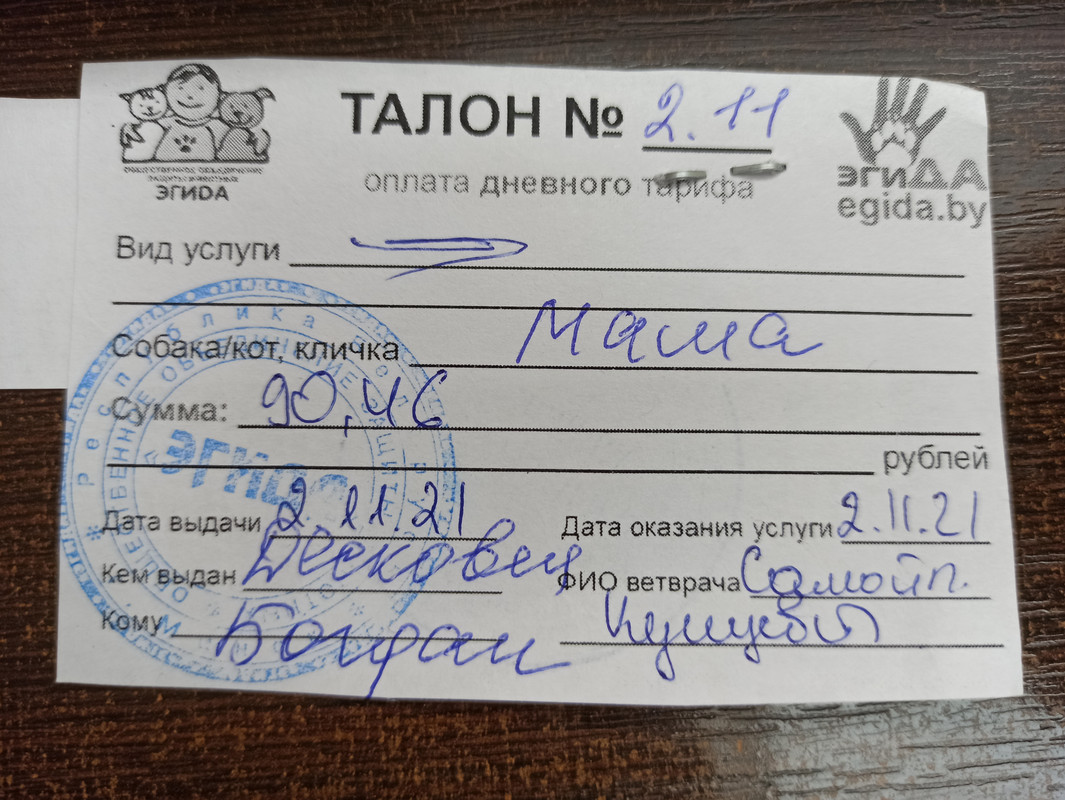 ТАЛОН № 2.11
оплата дневного тарифа
ОБЩЕСТВЕННОЕ ОБЪЕДИНЕНИЕ
ЗАЩИТЫ ЖИВОТНЫХ
ЭГИДА
эгиДА
egida.by
Вид услуги
Собака/кот, кличка Мама
Сумма: 90,46
рублей
Дата выдачи 2.11.21 Дата оказания услуги 2.11.21
Кем выдан ФИО ветврача Самойл.
Кому Богдан
Республика Беларусь
ЭГИДА